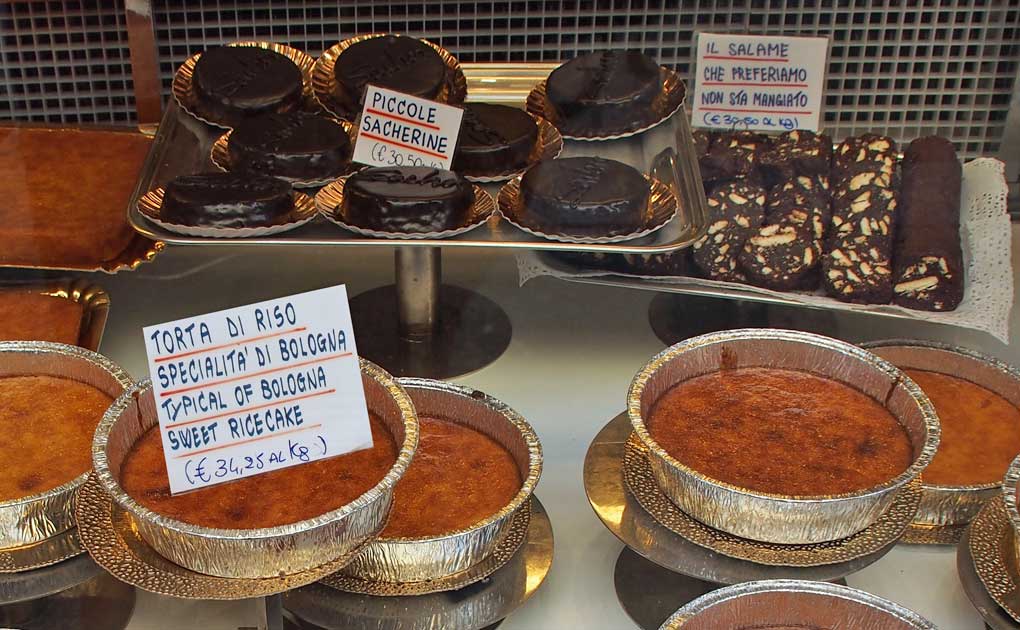 PICCOLE
SACHERINE
(€ 30,50
IL SALAME
CHE PREFERIAMO
NON STA MANGIATO
AL KG)
TORTA DI RISO
SPECIALITA' DI BOLOGNA
TYPICAL OF BOLOGNA
SWEET RICECAKE
(€ 34,25 AL Kg)
Sacher